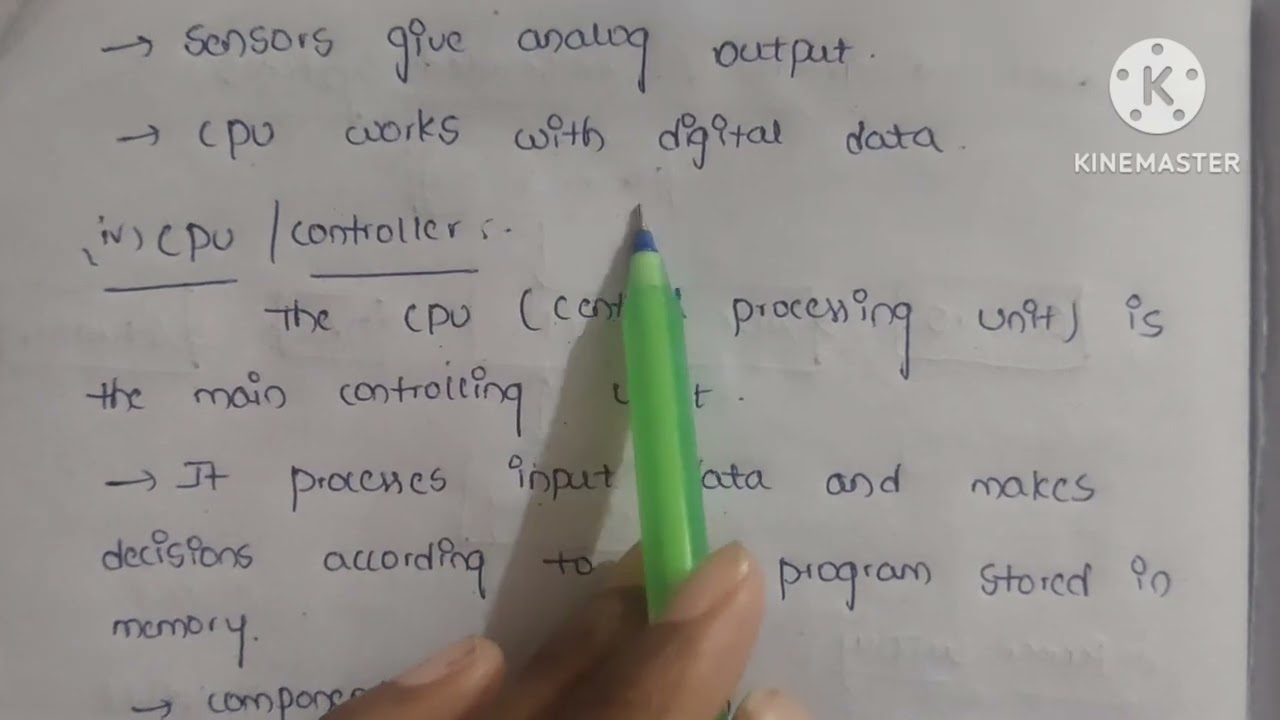 → Sensors give analog output.
→ CPU works with digital data.
iv) CPU / controller :-
The CPU (cent processing unit) is
the main controlling .
→ It processes input data and makes
decisions according to program stored in
memory.
→ compone
KINEMASTER